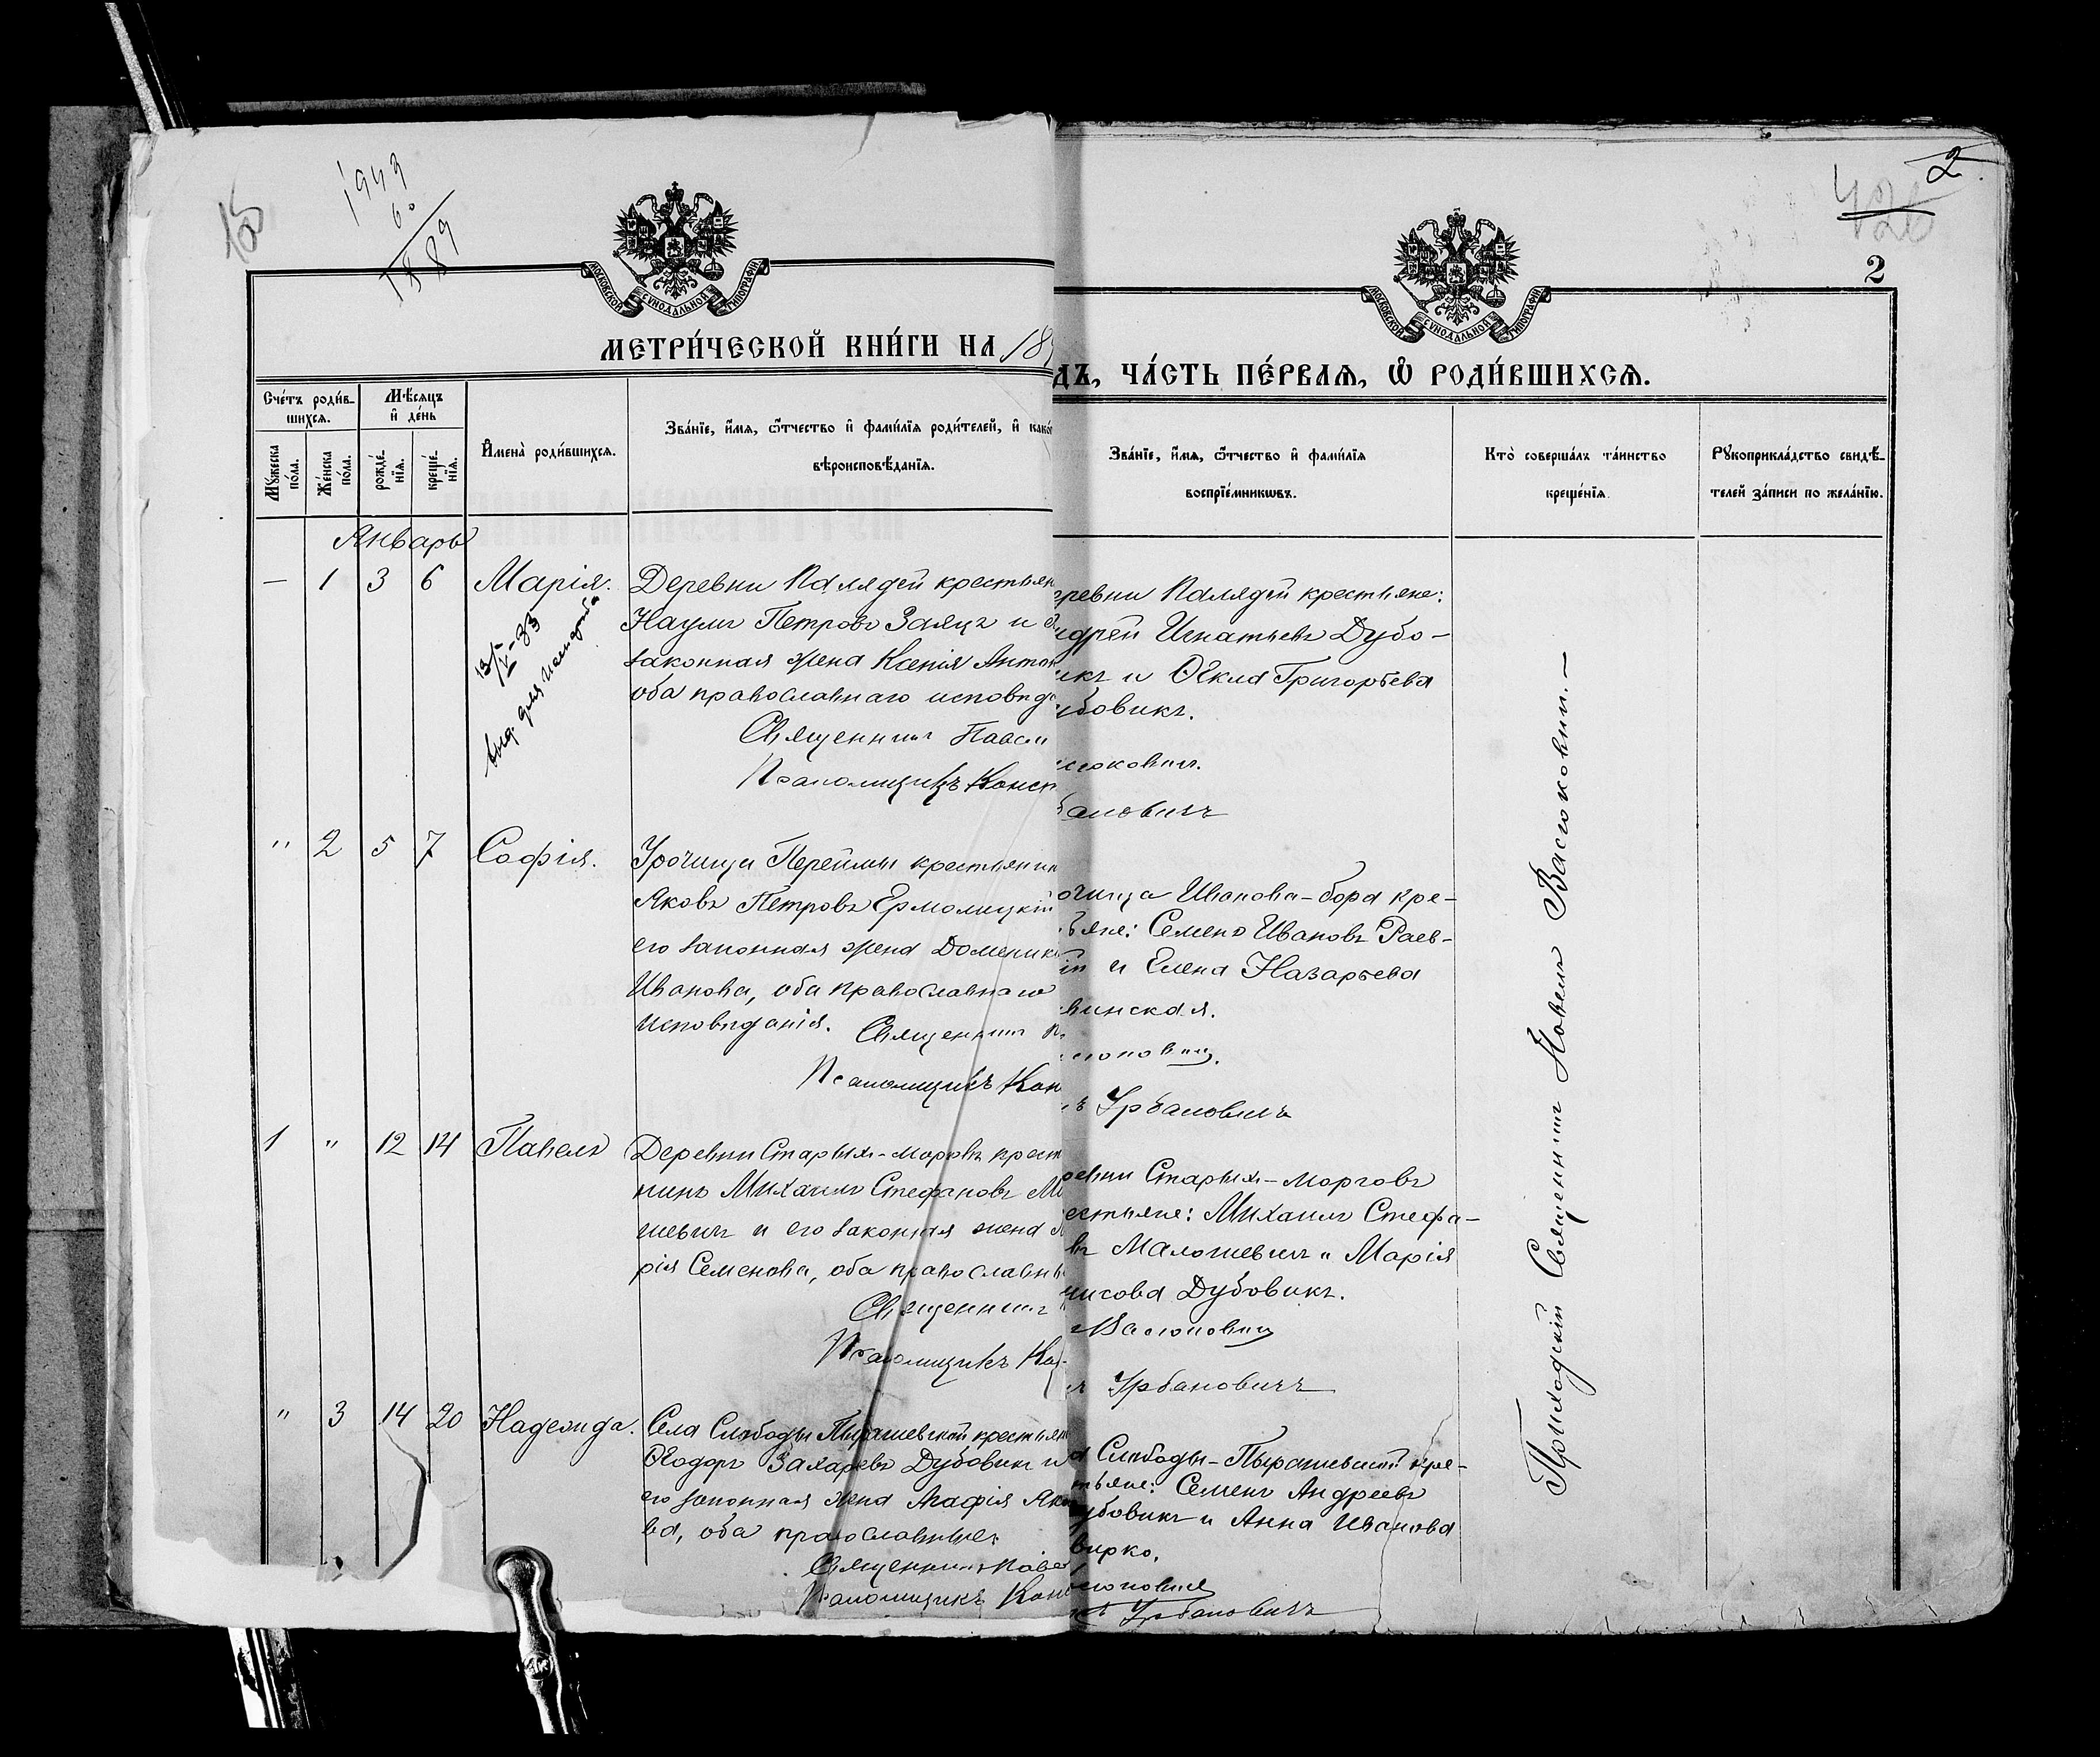 1949
2
2
МОСКОВСКОЙ СУНОДАЛЬНОЙ ТИПОГРАФІИ.
МОСКОВСКОЙ СУНОДАЛЬНОЙ ТИПОГРАФІИ.
МЕТРИ́ЧЕСКОЙ КНИ́ГИ НА 18
ДЪ, ЧА́СТЬ ПЕ́РВАЯ, Ѡ҆ РОДИ́ВШИХСЯ.
Сче́тъ роди́в-
шихся.
Мѣ́сяцъ
и҆ де́нь
Мꙋ́жеска
по́ла.
Же́нска
по́ла.
рожде́-
нїя.
креще́-
нїя.
И҆мена̀ роди́вшихся.
Зва́нїе, и҆́мя, ѻ҆́тчество и҆ фами́лїя роди́телей, и҆ како́
вѣроисповѣ́данїя.
Зва́нїе, и҆́мя, ѻ҆́тчество и҆ фами́лїя
воспрїе́мникѡвъ.
Кто̀ соверша́лъ та́инство
креще́нїя.
Рꙋкоприкла́дство свидѣ́-
телей за́писи по жела́нїю.
Январь
— 1 3 6 Марія.
Деревни Палядей крестьян
Наумъ Петровъ Заяцъ и
законная жена Ксенія Антон
оба православнаго исповѣд
Священникъ Павел
Псаломщикъ Конст
еревни Палядей крестьяне:
ндрей Игнатьевъ Дубо-
икъ и Ѳекла Григорьева
убовикъ.
сюковичъ.
бановичъ
" 2 5 7 Софія.
Урочища Переймы крестьянин
Яковъ Петровъ Ермолицкій
его законная жена Доменик
Иванова, оба православнаго
исповѣданія. Священникъ П
Псаломщикъ Кон
очища Иванова-бора кре-
ьяне: Семенъ Ивановъ Раев-
ій и Елена Назарьева
винская.
сюковичъ.
ъ Урбановичъ
1 " 12 14 Павелъ
Деревни Старыхъ-Морговъ крест
нинъ Михаилъ Стефановъ М
шевичъ и его законная жена М
рія Семенова, оба православны
Священникъ
Псаломщикъ Ко
ревни Старыхъ-Морговъ
естьяне: Михаилъ Стефа-
въ Малюшевичъ и Марія
исова Дубовикъ.
Васюковичъ
ъ Урбановичъ
" 3 14 20 Надежда.
Села Слободы Пырашевской крестьян
Ѳеодоръ Захарьевъ Дубовикъ и
его законная жена Агафія Яко
ва, оба православные.
Священникъ Павел
Псаломщикъ Конс
а Слободы-Пырашевской кре-
тьяне: Семенъ Андреевъ
убовикъ и Анна Иванова
вирко.
сюковичъ
нъ Урбановичъ
Приходскій Священникъ Павелъ Васюковичъ.—